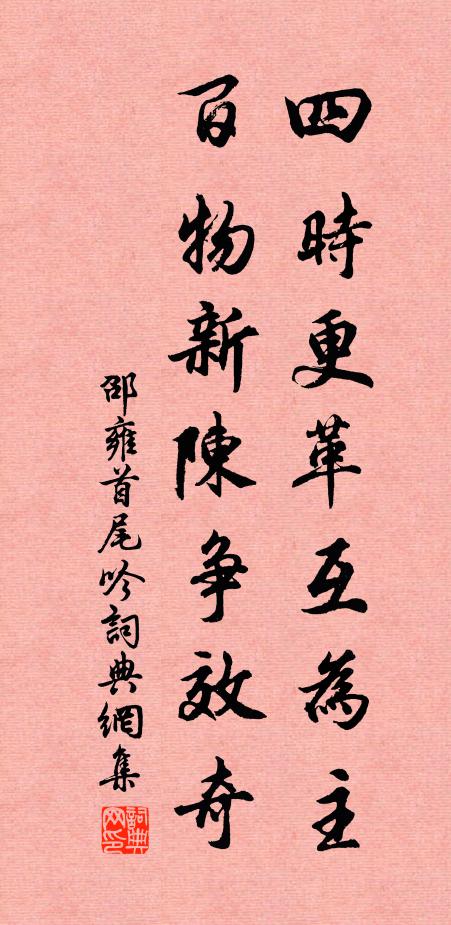 四時更革互為主
百物新陳争效奇
邵雍首尾吟詞典網集
詞典网印